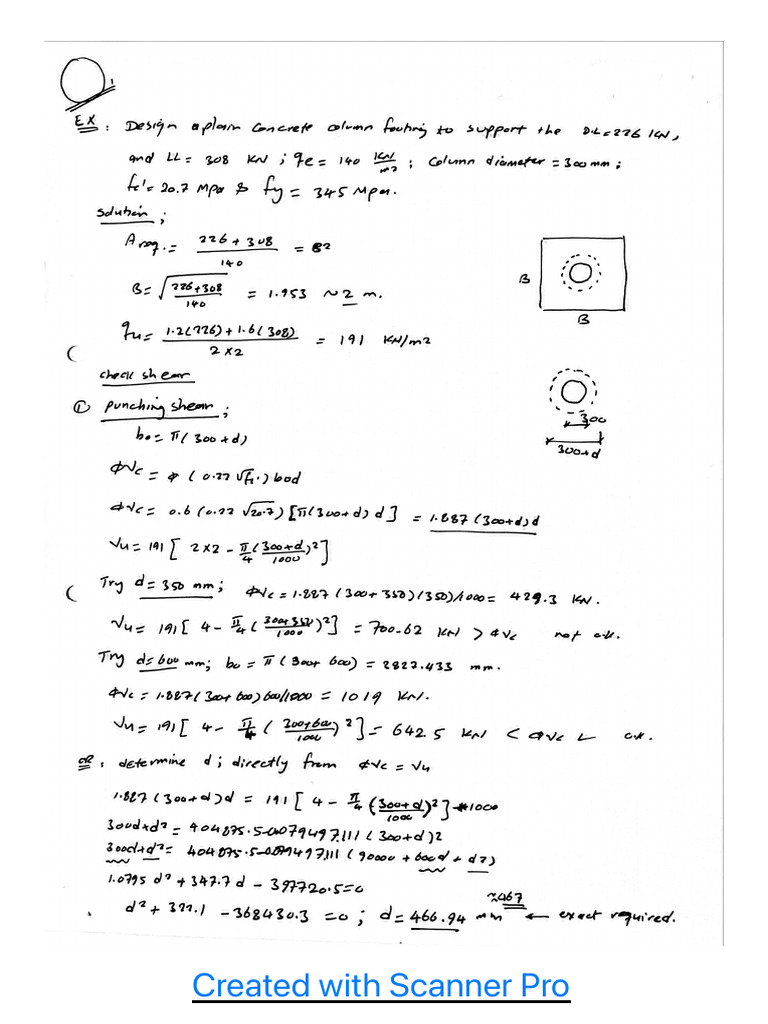 EX: Design a plain concrete column footing to support the D.L=226 KN,
and LL= 308 KN ; qe = 140 KN/m2 ; column diameter = 300 mm ;
fc'= 20.7 Mpa & fy = 345 Mpa.
solution ;
A req. = 226 + 308 / 140 = B2
B= √226+308 / 140 = 1.953 ~ 2 m.
B
B
qu = 1.2(226)+1.6(308) / 2 x 2 = 191 KN/m2
check shear
① punching shear ;
bo= π(300+d)
300
300+d
φVc = φ (0.22 √fc') bod
φVc = 0.6 (0.22 √20.7) [π(300+d) d] = 1.887 (300+d)d
Vu = 191 [ 2x2 - π/4 (300+d / 1000)2]
Try d= 350 mm; φVc = 1.887 (300+350)(350)/1000 = 429.3 KN.
Vu = 191[ 4- π/4 (300+350 / 1000)2] = 700.62 KN > φVc not o.k.
Try d=600 mm; bo = π(300+600) = 2827.433 mm.
φVc = 1.887(300+600)600/1000 = 1019 KN.
Vu = 191[ 4 - π/4 ( 300+600 / 1000 )2] = 642.5 KN < φVc o.k.
OR: determine d; directly from φVc = Vu
1.887 (300+d)d = 191[ 4 - π/4 (300+d / 1000)2] *1000
300d+d2 = 404875.5-0.079497111(300+d)2
300d+d2 = 404875.5-0.079497111(90000+600d+d2)
1.0795 d2 + 347.7 d - 397720.5=0
d2 + 322.1 - 368430.3 =0 ; d= 466.94 mm ≈467 ← exact required.
Created with Scanner Pro